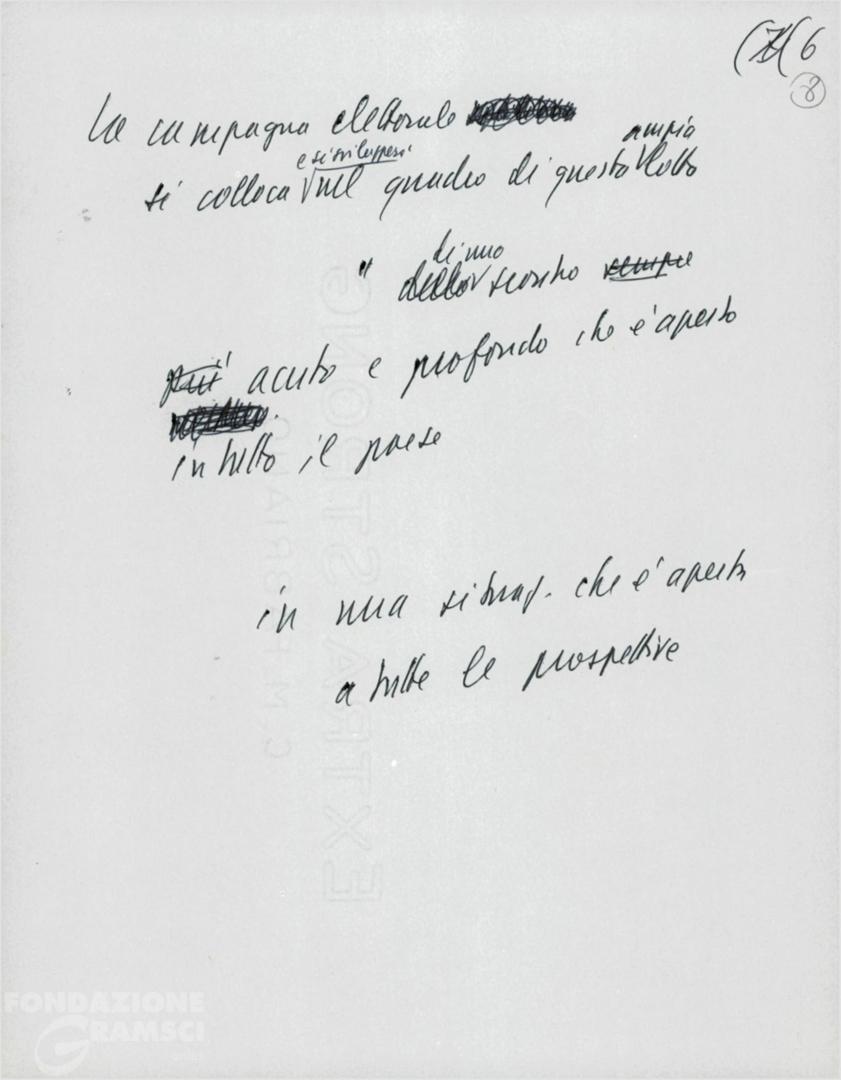 (7(6
8
La campagna elettorale
e si svilupperà
ampia
si colloca nel quadro di questa lotta
di uno
" dello scontro sempre
più acuto e profondo che è aperto
in tutto il paese
in una situaz. che è aperta
a tutte le prospettive
EXTRA STRONG
FONDAZIONE
GRAMSCI